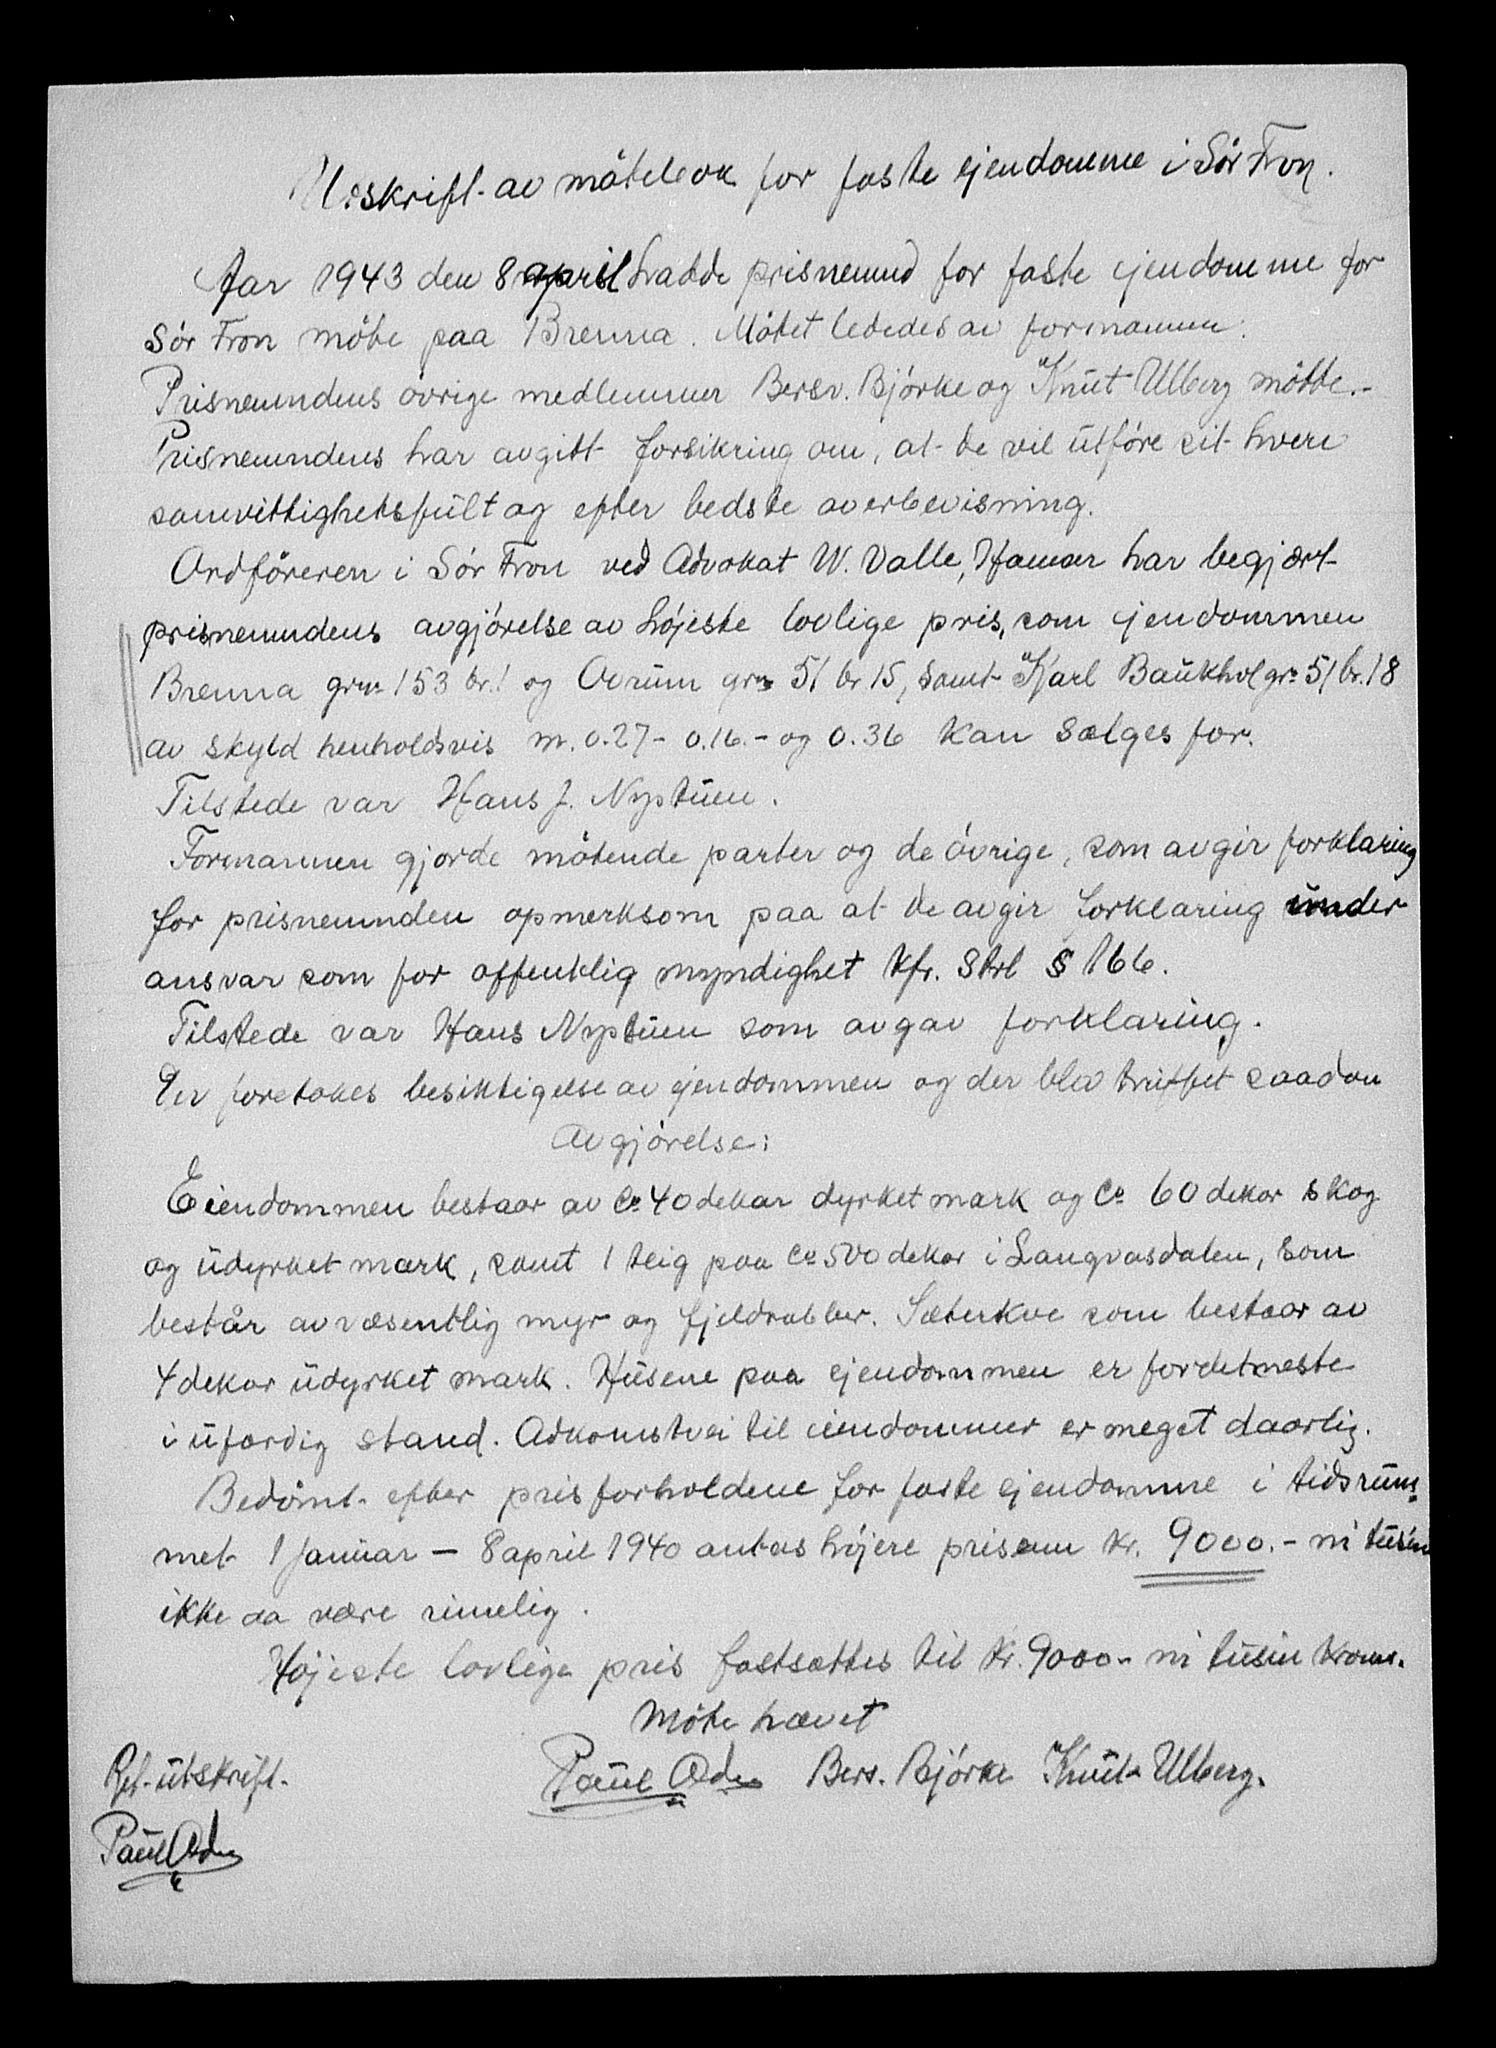 Utskrift av mötebok for faste ejendomme i Sör Fron.
Aar 1943 den 8 april hadde prisnemnd for faste ejendomme for
Sör Fron möte paa Brenna. Mötet lededes av formannen.
Prisnemndens övrige medlemmer Bersv. Björke og Knut Ulberg mötte.-
Prisnemndens har avgitt forsikring om, at de vil utföre sit hverv
samvittighetsfult og efter bedste overbevisning.
Ordföreren i Sör Fron ved Advokat W. Valle, Hamar har begjært
prisnemndens avgjörelse av höjeste lovlige pris, som ejendommen
Brenna grn 153 br. 1 og Øvrum grn 51 br 15, samt Karl Baukhol gr. 51 br. 18
av skyld henholdsvis m. 0.27- 0.16.- og 0.36 kan sælges for.
Tilstede var Hans J. Nyptuen.
Formannen gjorde mötende parter og de övrige, som avgir forklaring
for prisnemnden opmerksom paa at de avgir forklaring under
ansvar som for offentlig myndighet kfr. Strl § 166.
Tilstede var Hans Nyptuen som avgav forklaring.
Der foretokes besiktigelse av ejendommen og der blev truffet saadan
Avgjörelse:
Eiendommen bestaar av ca 40 dekar dyrket mark og ca 60 dekar skog
og udyrket mark, samt 1 teig paa ca 500 dekar i Langvasdalen, som
består av væsentlig myr og fjeldrabber. Sæterkve som bestaar av
4 dekar udyrket mark. Husene paa ejendommen er fordetmeste
i ufærdig stand. Adkomstvei til eiendommer er meget daarlig.
Bedömt efter prisforholdene for faste ejendomme i tidsrum-
met 1 januar - 8 april 1940 antas höjere pris enn kr. 9000.- ni tusin
ikke aa være rimelig.
Höjeste lovlige pris fastsættes til kr. 9000- ni tusin kroner.
Möte hævet
Paul Bers. Björke Knut Ulberg.
Ret utskrift.
Paul